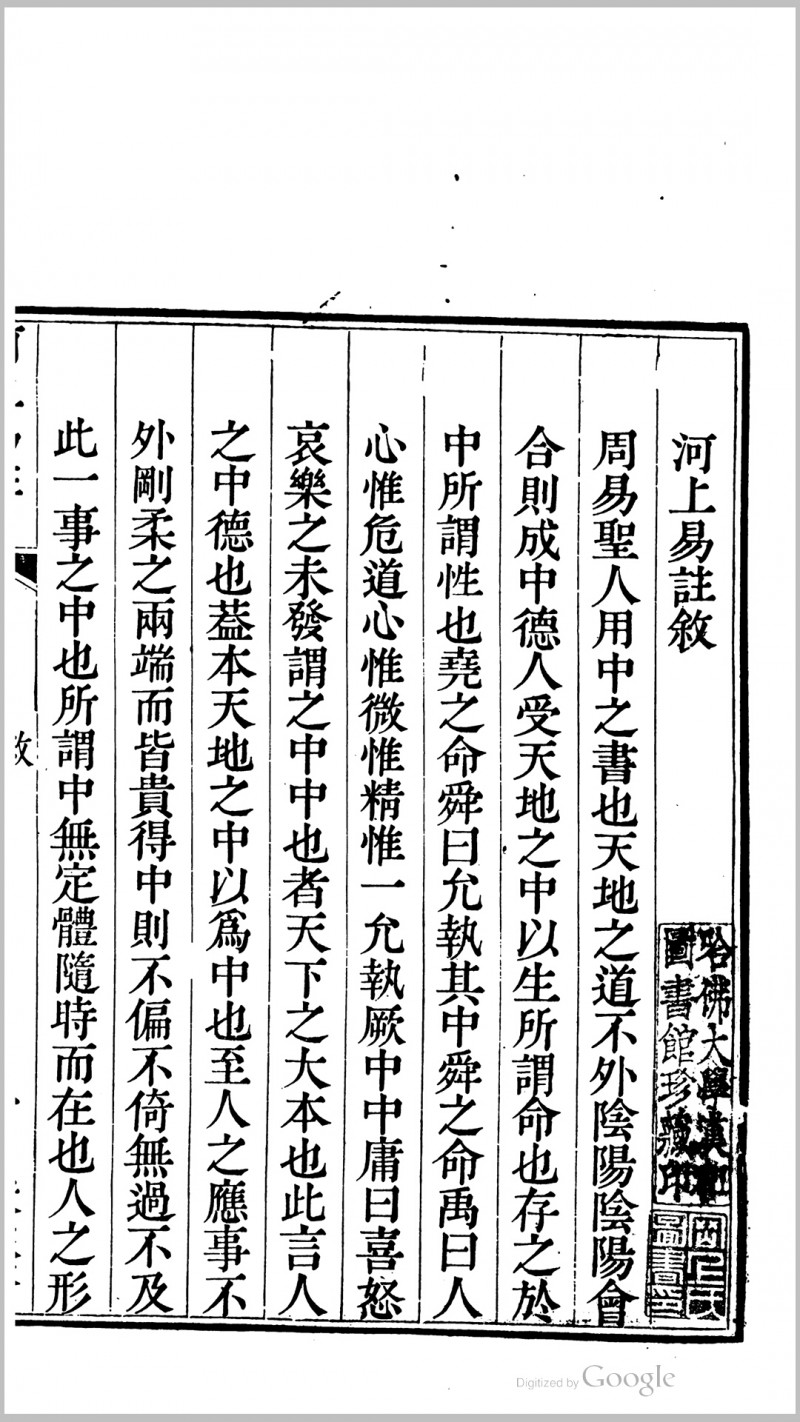 河上易註敘
周易聖人用中之書也天地之道不外陰陽陰陽會
合則成中德人受天地之中以生所謂命也存之於
中所謂性也堯之命舜曰允執其中舜之命禹曰人
心惟危道心惟微惟精惟一允執厥中中庸曰喜怒
哀樂之未發謂之中中也者天下之大本也此言人
之中德也葢本天地之中以爲中也至人之應事不
外剛柔之兩端而皆貴得中則不偏不倚無過不及
此一事之中也所謂中無定體隨時而在也人之形
哈佛大學漢和
圖書館珍藏印
Digitized by Google